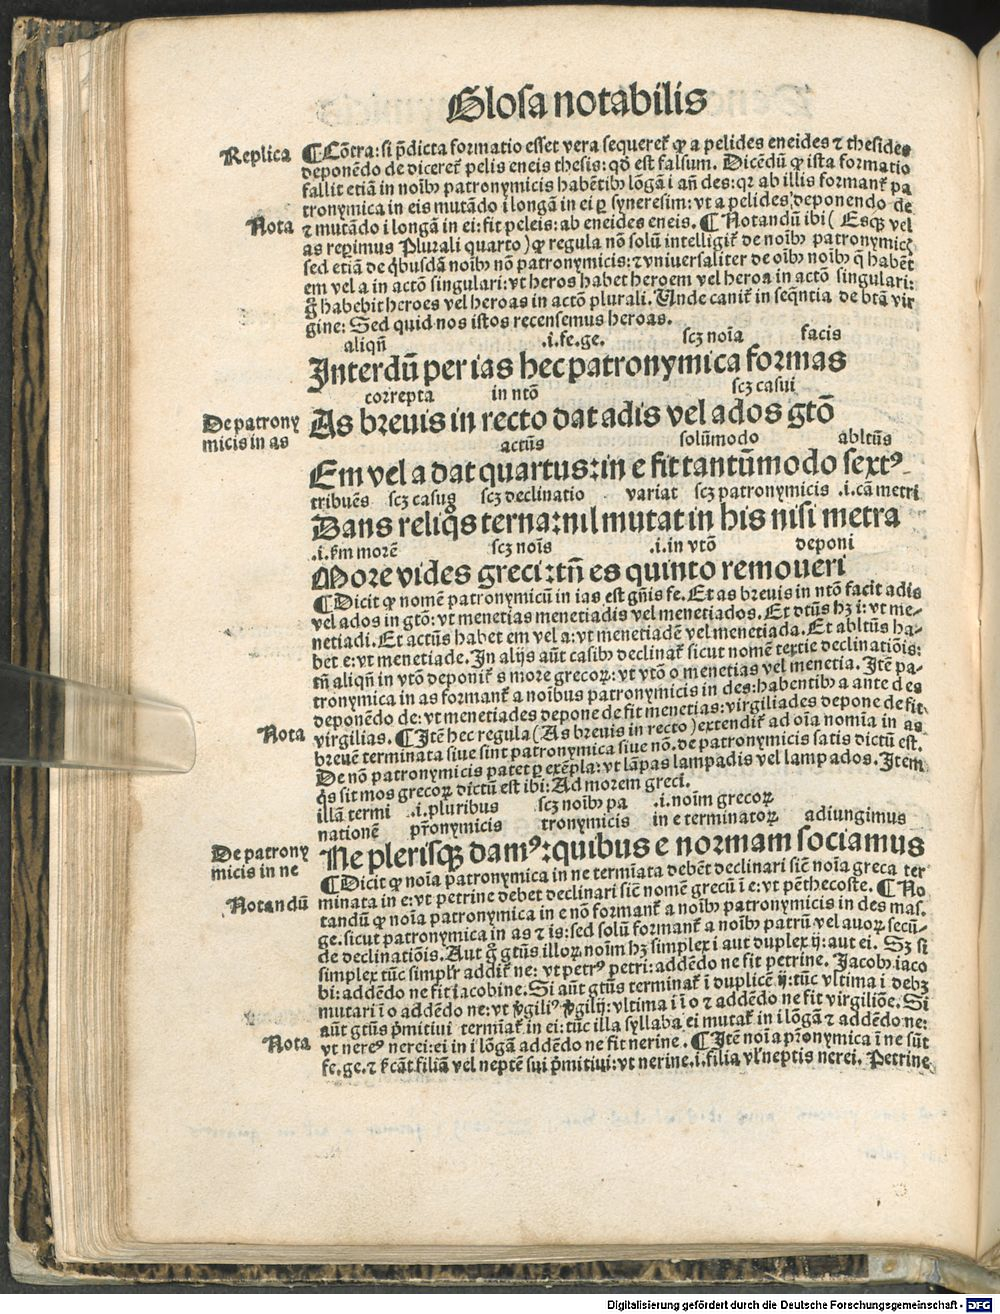 Glosa notabilis
Replica ¶ Cõtra: si p̃dicta formatio esset vera sequeret᷑ qꝫ a pelides eneides ⁊ thesides
deponẽdo de diceret᷑ pelis eneis thesis: qd̃ est falsum. Dicẽdũ ꝙ ista formatio
fallit etiã in noĩbꝫ patronymicis habẽtibꝫ lõgã i añ des: qꝛ ab illis formant᷑ pa
tronymica in eis mutãdo i longã in ei ꝑ syneresim: vt a pelides deponendo de
Nota ⁊ mutãdo i longã in ei: fit peleis: ab eneides eneis. ¶ Notandũ ibi (Esqꝫ vel
as reperimus Plurali quarto) ꝙ regula nõ solũ intelligit᷑ de noĩbꝫ patronymicꝭ
sed etiã de q̇busdã noĩbꝫ nõ patronymicis: ⁊ vniuersaliter de oĩbꝫ noĩbꝫ q̃ habẽt
em vel a in actõ singulari: vt heros habet heroem vel heroa in actõ singulari:
g̊ habebit heroes vel heroas in actõ plurali. Unde canit᷑ in seq̃ntia de btã vir
gine: Sed quid nos istos recensemus heroas.
aliqñ .i. fe. ge. scꝫ noĩa facis
Interdũ per ias hec patronymica formas
correpta in ntõ scꝫ casui
De patrony
micis in as
As breuis in recto dat adis vel ados gtõ
actũs solũmodo abltũs
Em vel a dat quartus: in e fit tantũmodo sextꝰ
tribuẽs scꝫ casuq̊ scꝫ declinatio variat scꝫ patronymicis .i. cã metri
Dans reliq̊s terna: nil mutat in his nisi metra
.i. ẜm morẽ scꝫ noĩs .i. in vtõ deponi
More vides greci: tñ es quinto remoueri
¶ Dicit ꝙ nomẽ patronymicũ in ias est gñis fe. Et as breuis in ntõ facit adis
vel ados in gtõ: vt menetias menetiadis vel menetiados. Et dtũs hꝫ i: vt me-
netiadi. Et actũs habet em vel a: vt menetiadẽ vel menetiada. Et abltũs ha-
bet e: vt menetiade. In alijs aũt casibꝫ declinat᷑ sicut nomẽ tertie declinatiõis:
tñ aliqñ in vtõ deponit᷑ s more grecoꝝ: vt vtõ o menetias vel menetia. Itẽ pa-
tronymica in as formant᷑ a noĩbus patronymicis in des: habentibꝫ a ante des
deponẽdo de: vt menetiades depone de fit menetias: virgiliades depone de fit
Nota virgilias. ¶ Itẽ hec regula (As breuis in recto) extendit᷑ ad oĩa nomĩa in as
breuẽ terminata siue sint patronymica siue nõ. de patronymicis satis dictũ est.
De nõ patronymicis patet ꝑ exẽpla: vt lãpas lampadis vel lampados. Item
q̊s sit mos grecoꝝ dictũ est ibi: Ad morem greci.
illã termi .i. pluribus scꝫ noĩbꝫ pa .i. noĩm grecoꝝ
nationẽ pr̃onymicis tronymicis in e terminatoꝝ adiungimus
De patrony
micis in ne
Ne plerisqꝫ damꝰ: quibus e normam sociamus
¶ Dicit ꝙ noĩa patronymica in ne termĩata debẽt declinari siẽ noĩa greca ter
Notandũ minata in e: vt petrine debet declinari siẽ nomẽ grecũ ĩ e: vt pẽthecoste. ¶ No
tandũ ꝙ noĩa patronymica in e nõ formant᷑ a noĩbꝫ patronymicis in des mas.
ge. sicut patronymica in as ⁊ is: sed solũ formant᷑ a noĩbꝫ patrũ vel auoꝝ secũ-
de declinatiõis. Aut g̊ gtũs illoꝝ noĩm hꝫ simplex i aut duplex ij: aut ei. Sꝫ si
simplex tũc simplr̃ addit᷑ ne: vt petrꝰ petri: addẽdo ne fit petrine. Jacobꝫ iaco
bi: addẽdo ne fit iacobine. Si aũt gtũs terminat᷑ i duplicẽ ij: tũc vltima i debꝫ
mutari ĩ o addẽdo ne: vt v̓giliꝰ v̓gilij: vltima i ĩ o ⁊ addẽdo ne fit virgiliõe. Si
aũt gtũs p̃mitiui termĩat᷑ in ei: tũc illa syllaba ei mutat᷑ in i lõgã ⁊ addẽdo ne:
Nota vt nereꝰ nerei: ei in i lõgã addẽdo ne fit nerine. ¶ Itẽ noĩa pr̃onymica ĩ ne sũt
fe. ge. ⁊ ẜcãt filiã vel neptẽ sui p̃mitiui: vt nerine .i. filia vl̃ neptis nerei. Petrine
Digitalisierung gefördert durch die Deutsche Forschungsgemeinschaft - DFG